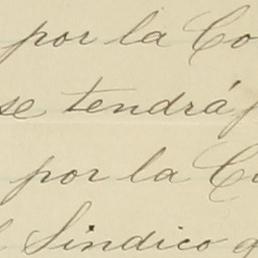 por la Co
se tendrá p
por la C
l Sindico q